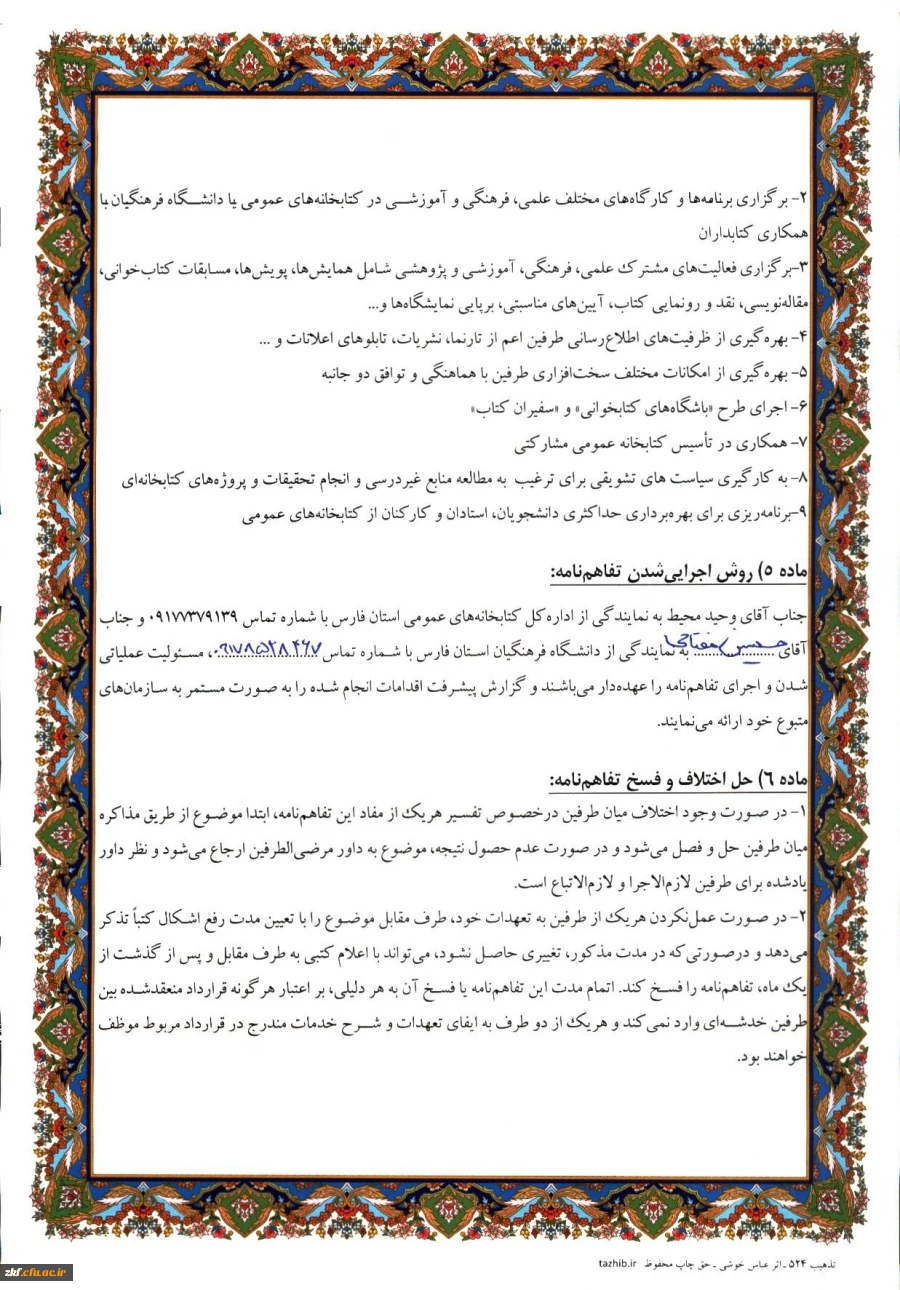 ۲- برگزاری برنامه‌ها و کارگاه‌های مختلف علمی، فرهنگی و آموزشی در کتابخانه‌های عمومی یا دانشگاه فرهنگیان با
همکاری کتابداران
۳-برگزاری فعالیت‌های مشترک علمی، فرهنگی، آموزشی و پژوهشی شامل همایش‌ها، پویش‌ها، مسابقات کتاب‌خوانی،
مقاله‌نویسی، نقد و رونمایی کتاب، آیین‌های مناسبتی، برپایی نمایشگاه‌ها و...
۴- بهره‌گیری از ظرفیت‌های اطلاع‌رسانی طرفین اعم از تارنما، نشریات، تابلوهای اعلانات و ...
۵- بهره‌گیری از امکانات مختلف سخت‌افزاری طرفین با هماهنگی و توافق دو جانبه
۶- اجرای طرح «باشگاه‌های کتابخوانی» و «سفیران کتاب»
۷- همکاری در تأسیس کتابخانه عمومی مشارکتی
۸- به کارگیری سیاست های تشویقی برای ترغیب به مطالعه منابع غیردرسی و انجام تحقیقات و پروژه‌های کتابخانه‌ای
۹-برنامه‌ریزی برای بهره‌برداری حداکثری دانشجویان، استادان و کارکنان از کتابخانه‌های عمومی
ماده ۵) روش اجرایی‌شدن تفاهم‌نامه:
جناب آقای وحید محیط به نمایندگی از اداره کل کتابخانه‌های عمومی استان فارس با شماره تماس ۰۹۱۷۷۳۷۹۱۳۹ و جناب
آقای حسین مفتاحی به نمایندگی از دانشگاه فرهنگیان استان فارس با شماره تماس ۰۹۱۷۸۵۲۸۴۶۷، مسئولیت عملیاتی
شدن و اجرای تفاهم‌نامه را عهده‌دار می‌باشند و گزارش پیشرفت اقدامات انجام شده را به صورت مستمر به سازمان‌های
متبوع خود ارائه می‌نمایند.
ماده ۶) حل اختلاف و فسخ تفاهم‌نامه:
۱- در صورت وجود اختلاف میان طرفین درخصوص تفسیر هریک از مفاد این تفاهم‌نامه، ابتدا موضوع از طریق مذاکره
میان طرفین حل و فصل می‌شود و در صورت عدم حصول نتیجه، موضوع به داور مرضی‌الطرفین ارجاع می‌شود و نظر داور
یادشده برای طرفین لازم‌الاجرا و لازم‌الاتباع است.
۲- در صورت عمل‌نکردن هریک از طرفین به تعهدات خود، طرف مقابل موضوع را با تعیین مدت رفع اشکال کتباً تذکر
می‌دهد و درصورتی‌که در مدت مذکور، تغییری حاصل نشود، می‌تواند با اعلام کتبی به طرف مقابل و پس از گذشت از
یک ماه، تفاهم‌نامه را فسخ کند. اتمام مدت این تفاهم‌نامه یا فسخ آن به هر دلیلی، بر اعتبار هرگونه قرارداد منعقدشده بین
طرفین خدشه‌ای وارد نمی‌کند و هریک از دو طرف به ایفای تعهدات و شرح خدمات مندرج در قرارداد مربوط موظف
خواهند بود.
تذهیب ۵۲۴ ـ اثر عباس خوشی ـ حق چاپ محفوظ tazhib.ir
zkf.cfu.ac.ir